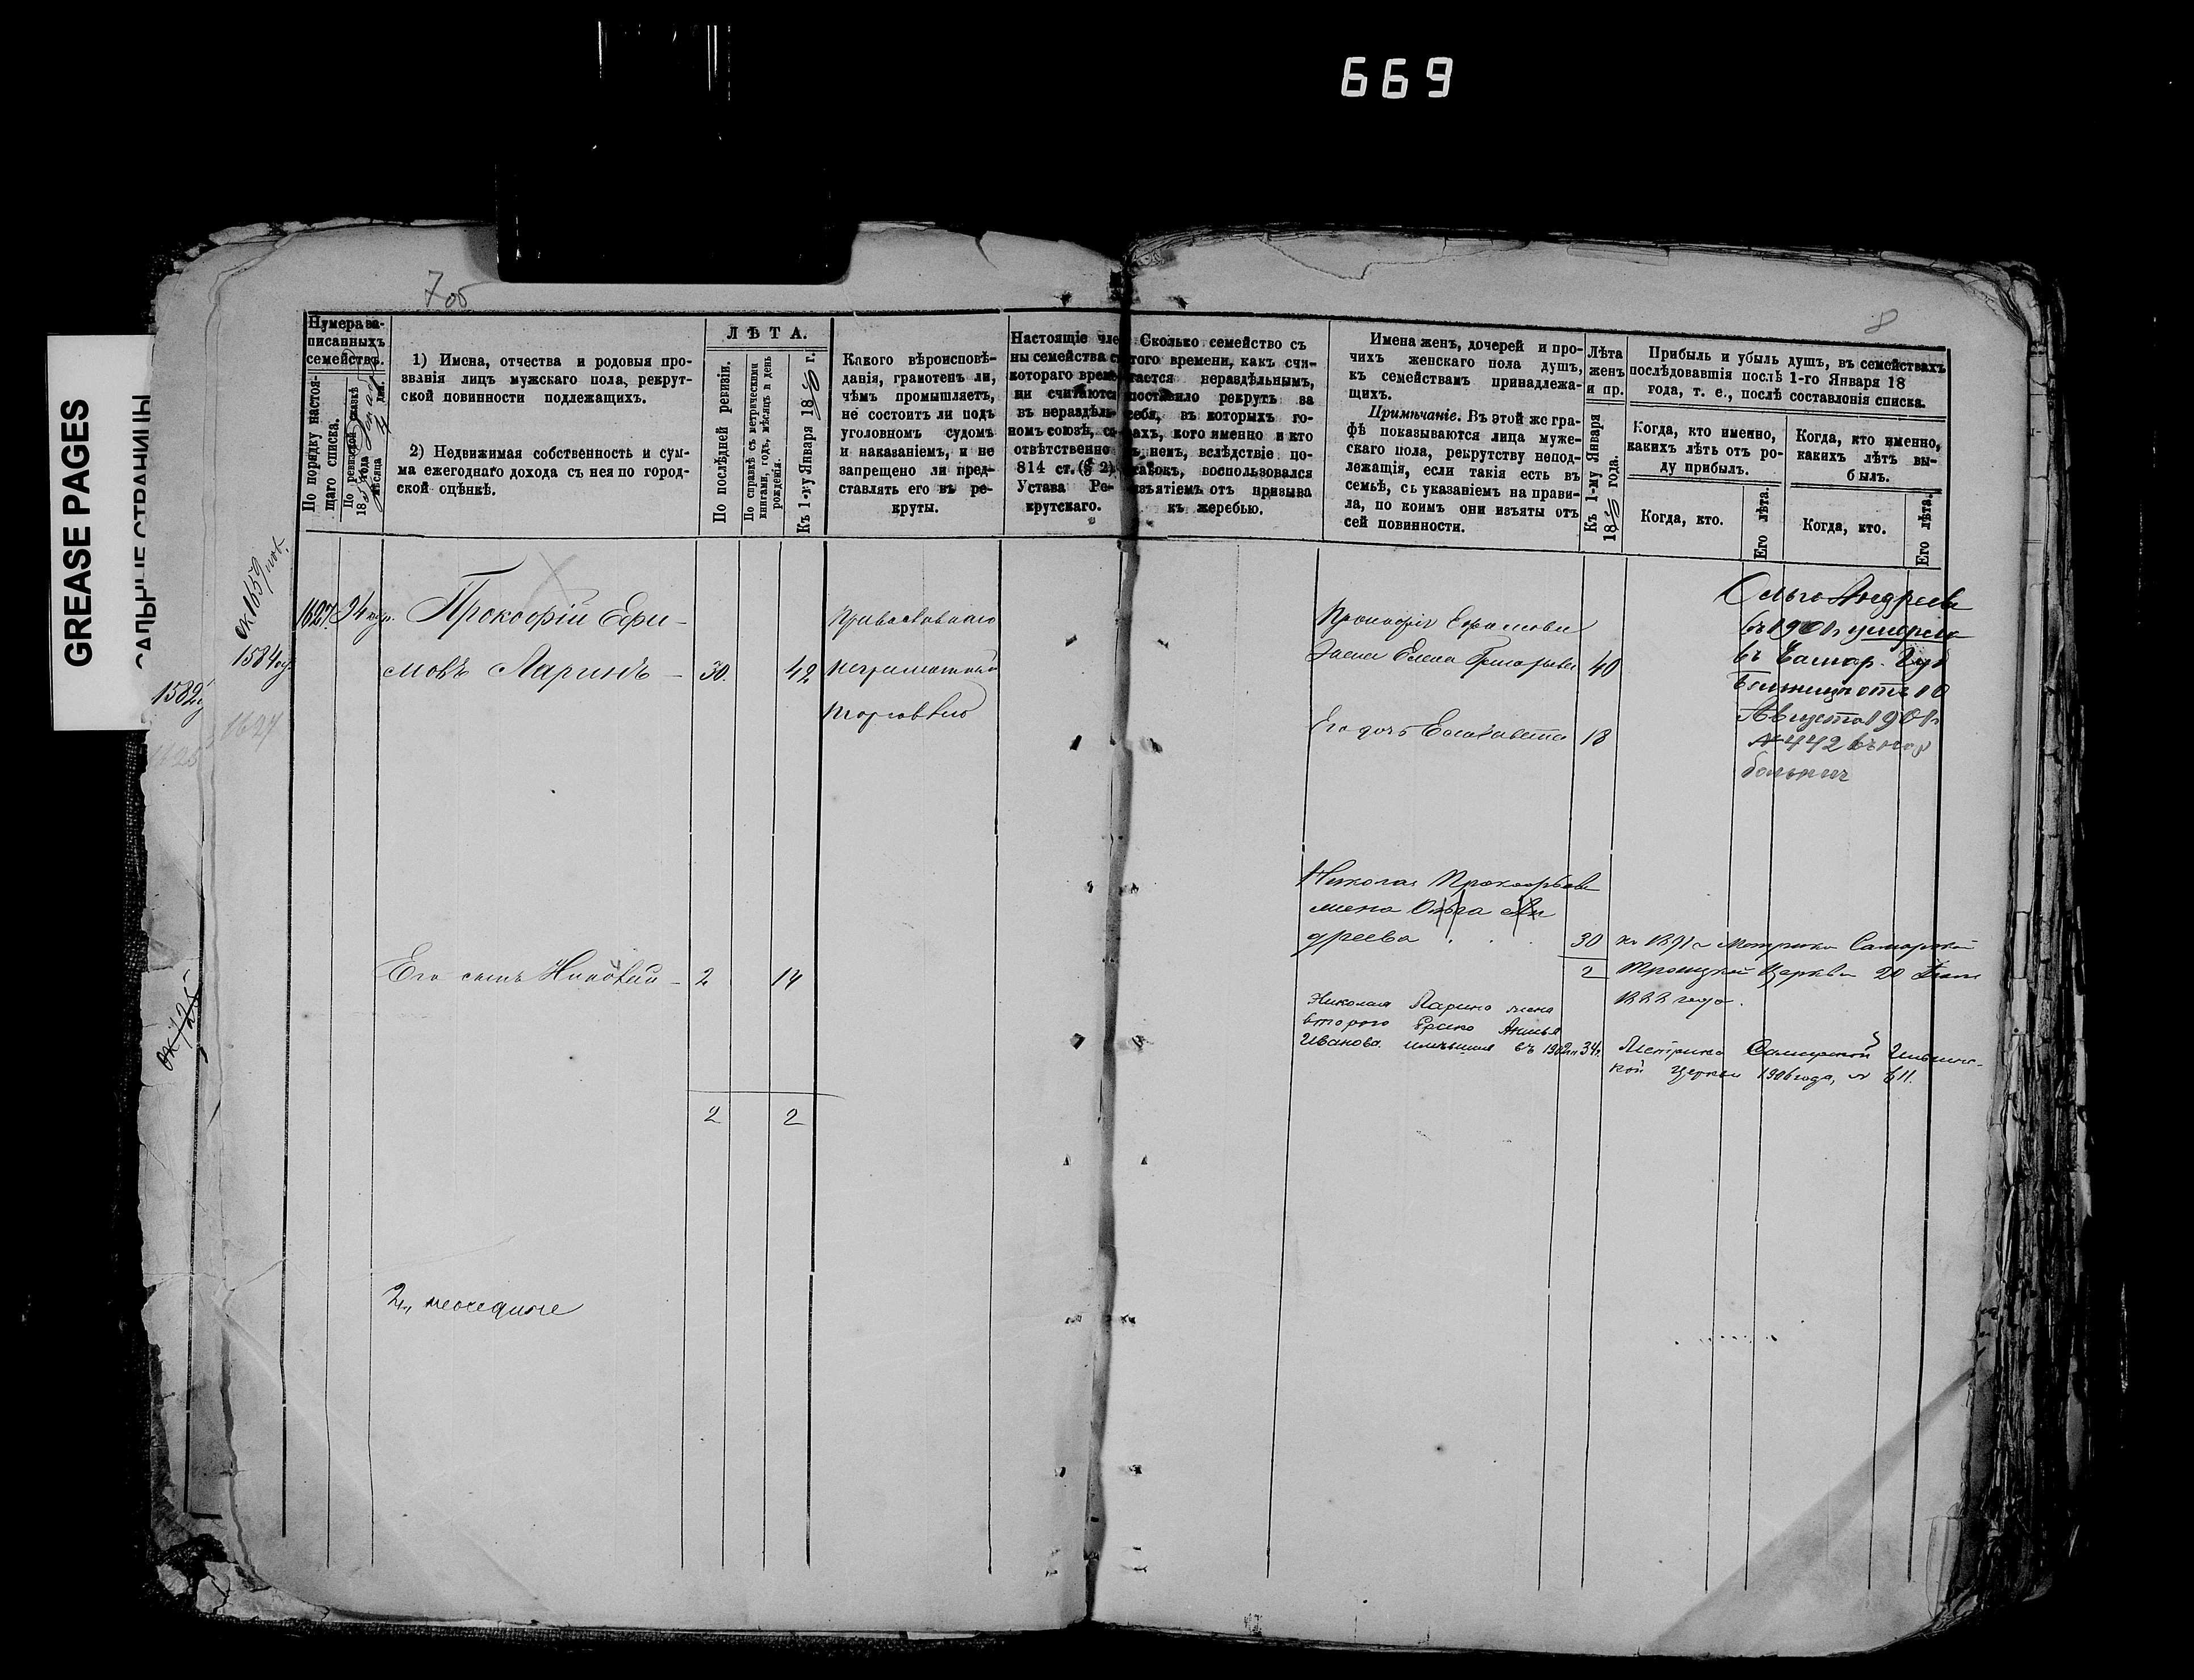 669
GREASE PAGES
7 об
8
Нумера за-
писанныхъ
семействъ.
По порядку настоя-
щаго списка.
По ревизской сказкѣ
18 года
мѣсяца дня.
1) Имена, отчества и родовыя про-
званія лицъ мужскаго пола, рекрут-
ской повинности подлежащихъ.
2) Недвижимая собственность и сум-
ма ежегоднаго дохода съ нея по город-
ской оцѣнкѣ.
ЛѢТА.
По послѣдней ревизіи.
По справкѣ съ метрическими
книгами, годъ, мѣсяцъ и день
рожденія.
Къ 1-му Января 18 г.
Какого вѣроисповѣ-
данія, грамотенъ ли,
чѣмъ промышляетъ,
не состоитъ ли подъ
уголовномъ судомъ
и наказаніемъ, и не
запрещено ли пред-
ставлять его въ ре-
круты.
Настоящіе чле
ны семейства с
котораго време
ни считаются
въ нераздѣль-
номъ союзѣ, со
отвѣтственно
814 ст. (§ 2)
Устава Ре-
крутскаго.
Сколько семейство съ
того времени, какъ счи-
тается нераздѣльнымъ,
поставило рекрутъ за
себя, въ которыхъ го-
дахъ, кого именно и кто
въ немъ, вслѣдствіе по-
воспользовался
изъятіемъ отъ призыва
къ жеребью.
Имена женъ, дочерей и про-
чихъ женскаго пола душъ,
къ семействамъ принадлежа-
щихъ.
Примѣчаніе. Въ этой же гра-
фѣ показываются лица муже-
скаго пола, рекрутству непод-
лежащія, если такія есть въ
семьѣ, съ указаніемъ на прави-
ла, по коимъ они изъяты отъ
сей повинности.
Лѣта
женъ
и пр.
Къ 1-му Января
18 года.
Прибыль и убыль душъ, въ семействахъ
послѣдовавшія послѣ 1-го Января 18
года, т. е., послѣ составленія списка.
Когда, кто именно,
какихъ лѣтъ отъ ро-
ду прибылъ.
Когда, кто именно,
какихъ лѣтъ вы-
былъ.
Когда, кто.
Его лѣта.
Когда, кто.
Его лѣта.
1627. 94 Прокофій Ефи-
мовъ Ларинъ - 30. 42
Православнаго
неграмотный
торговлею
Прокофія Ефимова
Жена Елена Григорьева 40
Его дочь Елизавета 18
Ольга Андреева
въ 1901 г умерла
въ Самар. Губ
больницѣ отъ 10
Августа 1901 г
№ 442
больниц
Николая Прокофьева
жена Ольга Ан
дреева . . . 30
2
Метрика Самарской
Троицкой Церкви 20
года.
Его сынъ Николай - 2 14
Николая Ларина жена
второго брака
Иванова въ 1902 г 34 г.
Метрика Самарской Ильинс-
кой церкви 1906 года, №
2 2
2